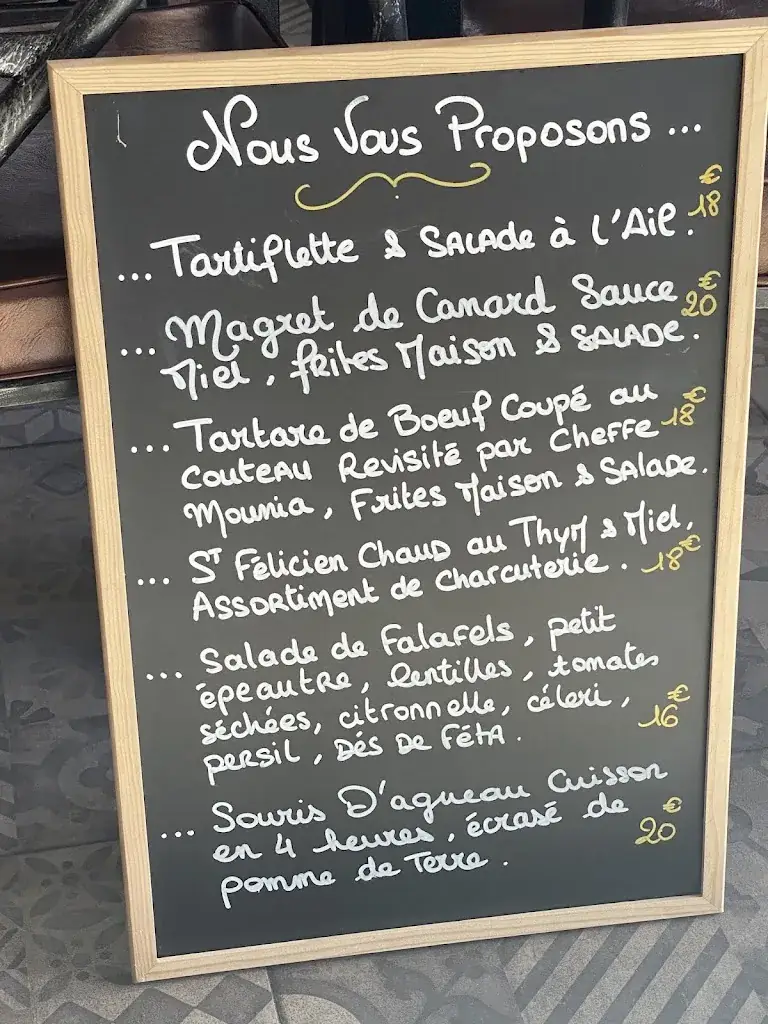 Nous Vous Proposons ...
... Tartiflette & Salade à l'Ail. 18€
... Magret de Canard Sauce 20€
Miel, frites Maison & Salade.
... Tartare de Boeuf Coupé au
Couteau Revisité par Cheffe 18€
Mounia, Frites Maison & Salade.
... St Félicien Chaud au Thym & Miel,
Assortiment de Charcuterie. 18€
... Salade de Falafels, petit
épeautre, lentilles, tomates
séchées, citronnelle, céleri, 16€
persil, Dés de Féta.
... Souris D'agneau Cuisson
en 4 heures, écrasé de 20€
pomme de Terre.